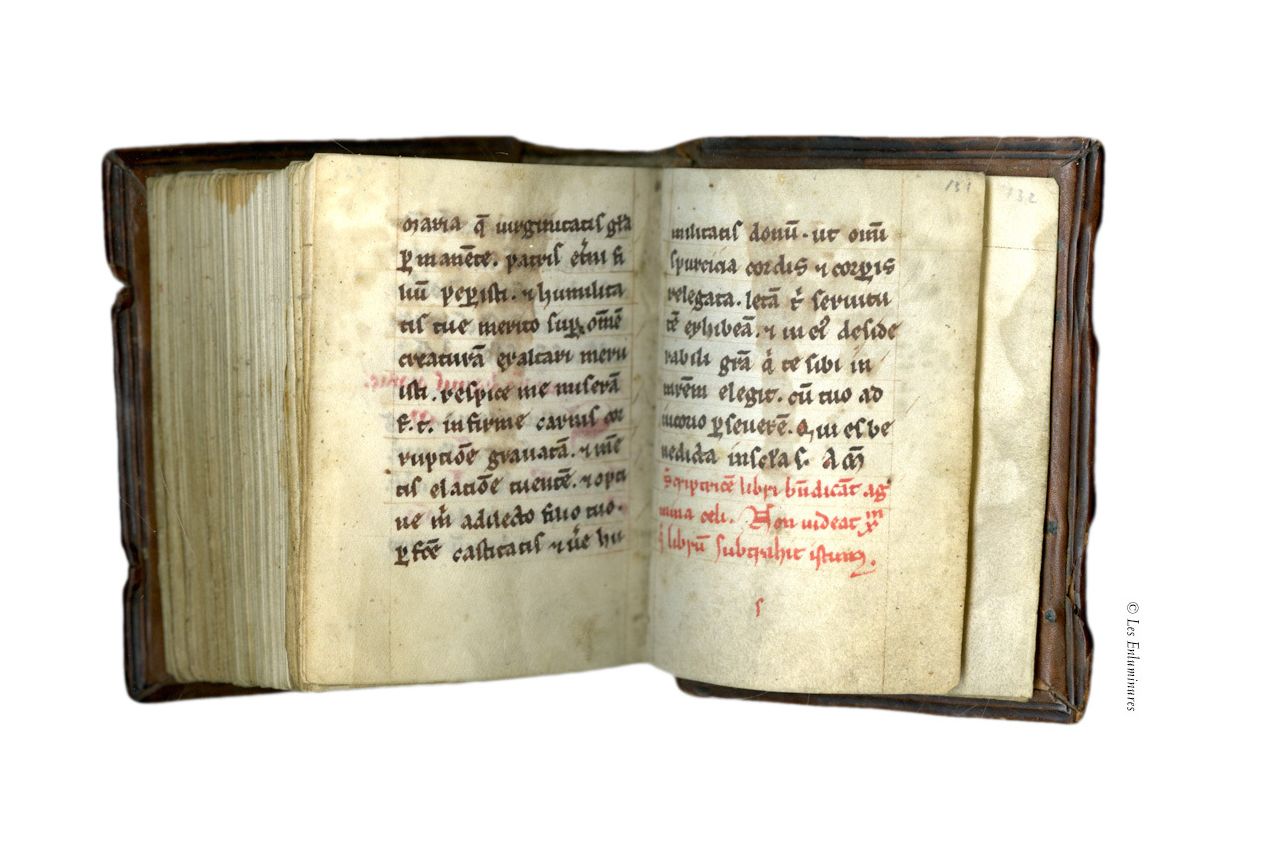 maria q̄ uirginitatis gr̄a
ꝑmanēte. patris et̄ni fi
liū peperisti. ⁊ humilita
tis tue merito suꝑ om̄ē
creaturā exaltari meru
isti. respice me miserā
f. t. infirme carnis cor
ruptiōe grauatā. ⁊ mē
tis elatiōe tumentē. ⁊ opti
ne m̄ a dilecto filio tuo.
ꝑfc̄e castitatis ⁊ ūe hu
militatis donū. ut omī
spurcicia cordis ⁊ corꝑis
relegata. letā t̄ seruitu
tē exhibeā. ⁊ in eꝰ deside
rabili gr̄a q̇ te sibi in
mr̄em elegit. cū tuo ad
iutorio ꝑseuerē. Q̇ ui es be
nedicta in sc̄la s̄. Am̄
Scriptricē libri bn̄dicāt ag
mina celi. Non uideat xp̄m
q̇ librū subtrahit istum.
131
132
© Les Enluminures